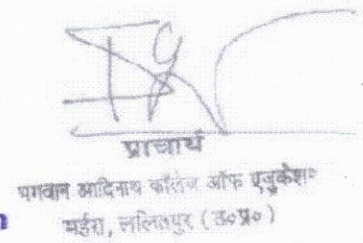 प्राचार्य
भगवान आदिनाथ कॉलेज ऑफ एजुकेशन
मर्हरा, ललितपुर (उ०प्र०)
n